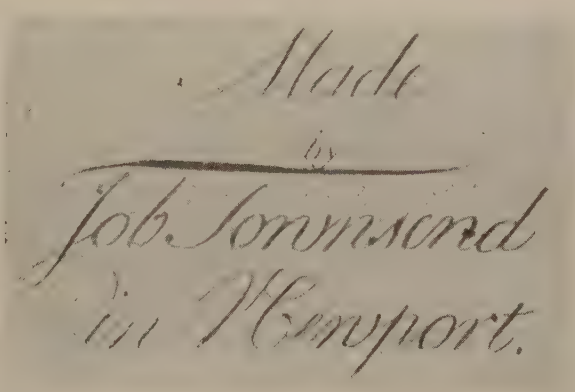 Made
by
Job Townsend
in Newport.